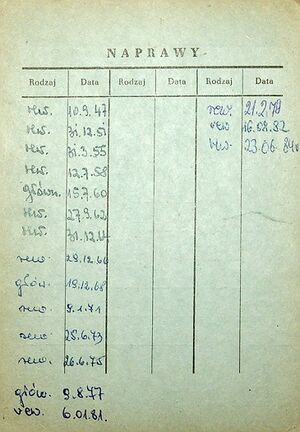 NAPRAWY
Rodzaj Data Rodzaj Data Rodzaj Data
rew. 10.9.47
rew. 31.12.51
rew. 31.3.55
rew. 12.7.58
główn. 15.7.60
rew. 27.9.62
rew. 31.12.64
rew. 29.12.66
głów. 19.12.68
rew. 9.1.71
rew. 25.6.73
rew. 26.6.75
głów. 9.8.77
rew. 6.01.81.
rew. 21.2.79
rew 16.08.82
rew. 23.06.84